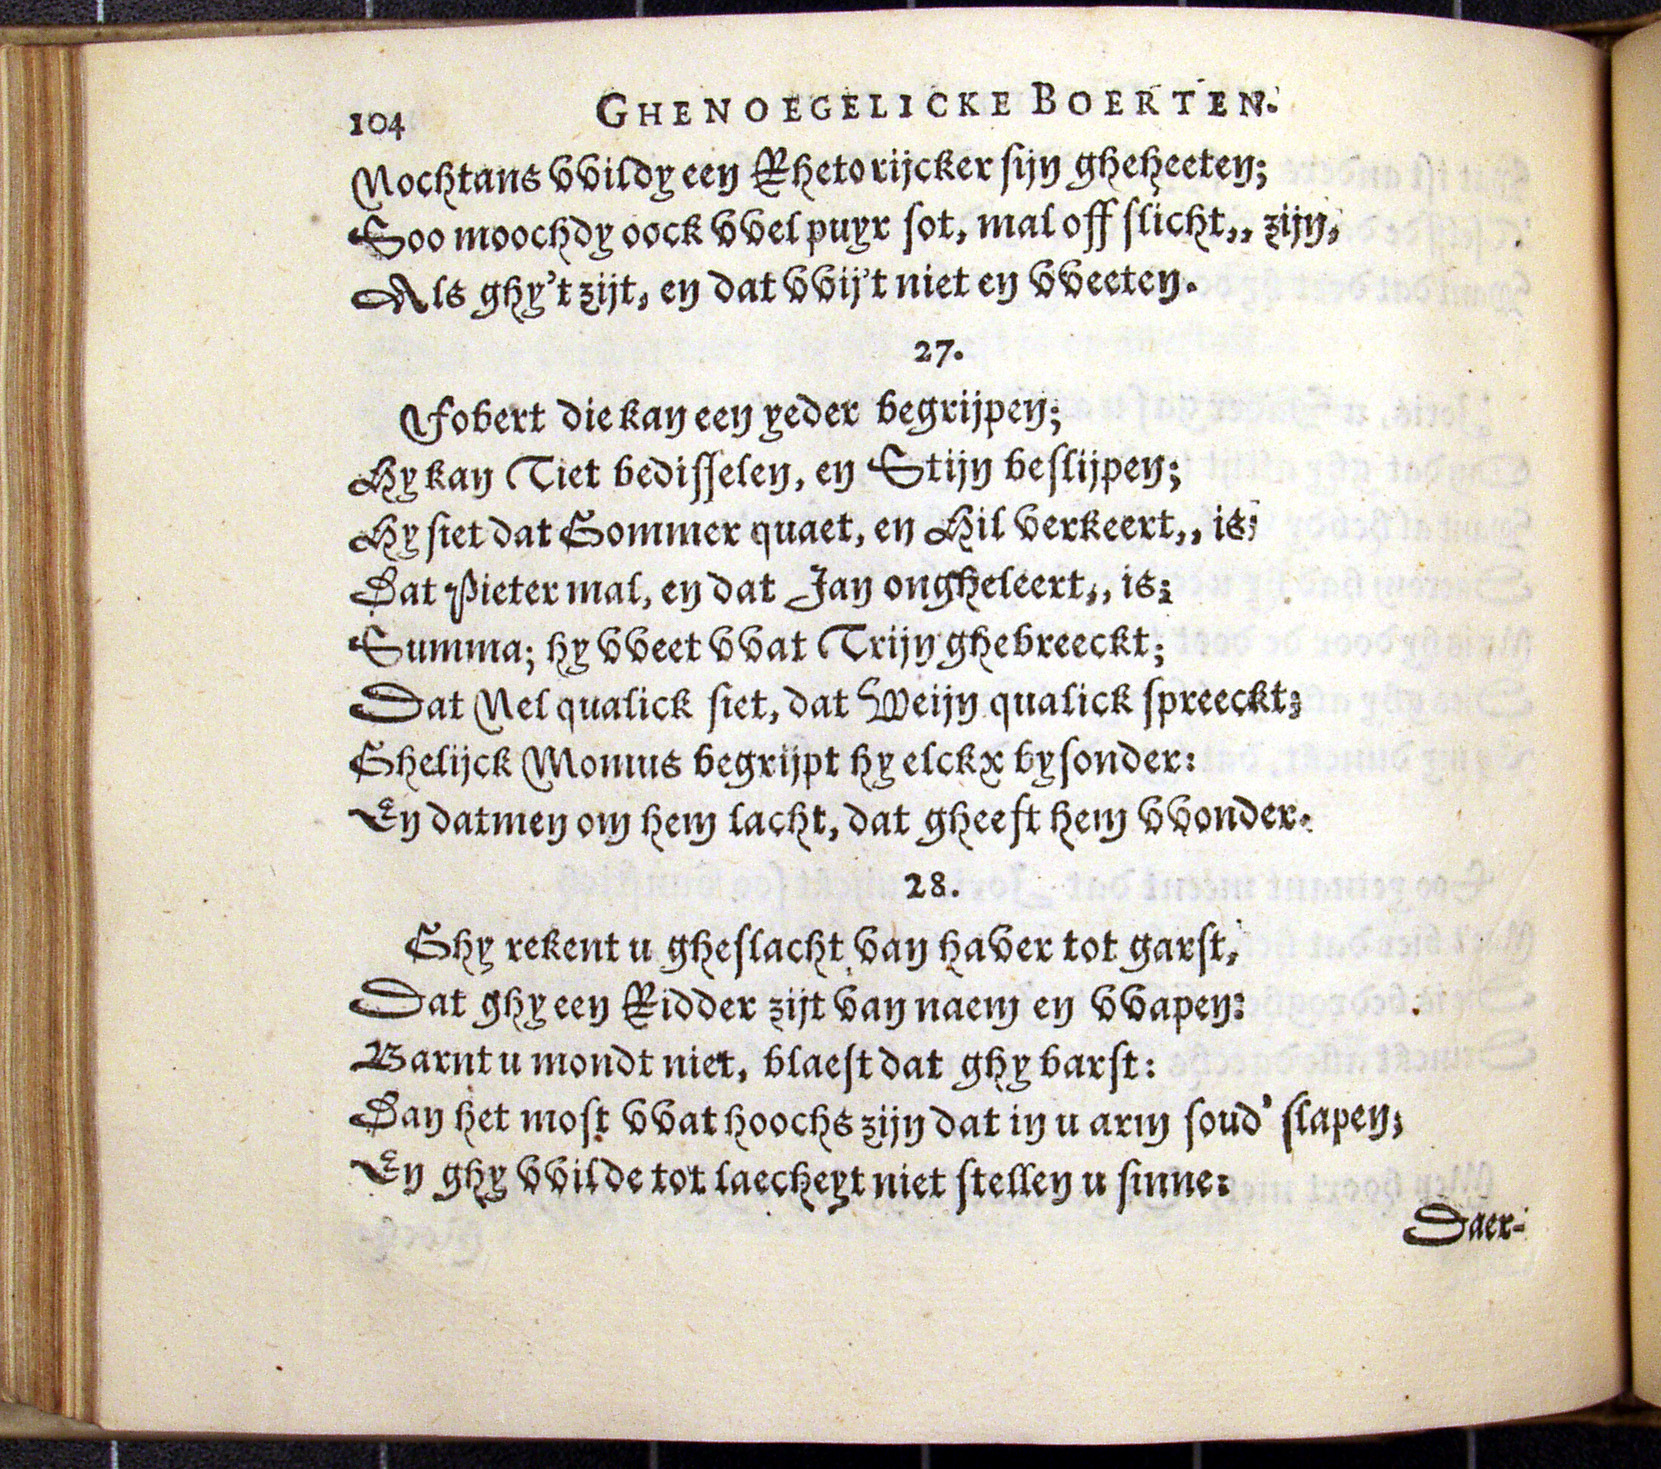 104 GHENOEGELICKE BOERTEN.
Nochtans vvildy een Rhetorijcker sijn gheheeten;
Soo moochdy oock vvel puyr sot, mal off slicht,, zijn,
Als ghy't zijt, en dat vvij't niet en vveeten.
27.
Fobert die kan een yeder begrijpen;
Hy kan Tiet bedisselen, en Stijn beslijpen;
Hy siet dat Gommer quaet, en Hil verkeert,, is;
Dat Pieter mal, en dat Jan ongheleert,, is;
Summa; hy vveet vvat Trijn ghebreeckt;
Dat Nel qualick siet, dat Weijn qualick spreeckt;
Ghelijck Momus begrijpt hy elckx bysonder:
En datmen om hem lacht, dat gheeft hem vvonder.
28.
Ghy rekent u gheslacht van haver tot garst,
Dat ghy een Ridder zijt van naem en vvapen:
Barnt u mondt niet, blaest dat ghy barst:
Dan het most vvat hoochs zijn dat in u arm soud' slapen;
En ghy vvilde tot laecheyt niet stellen u sinne:
Daer-